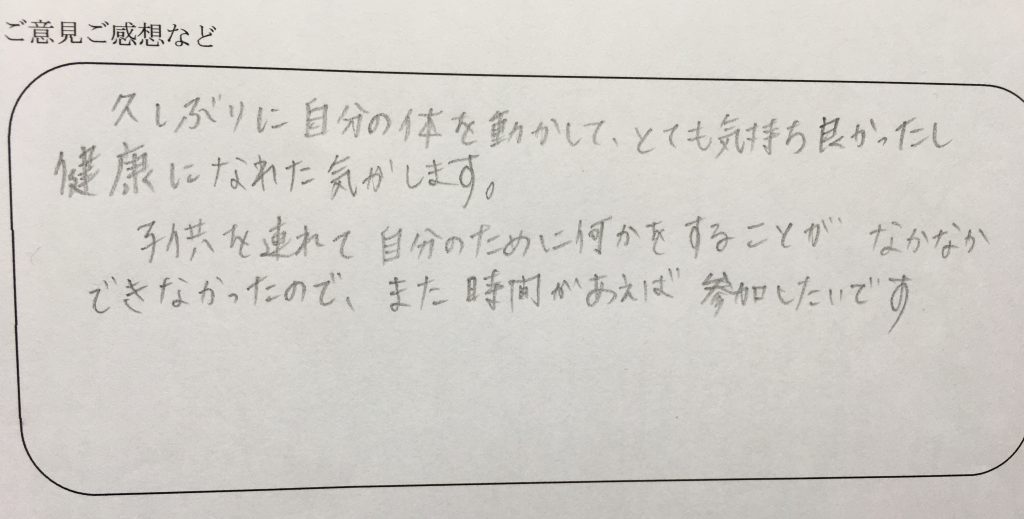 ご意見ご感想など
久しぶりに自分の体を動かして、とても気持ち良かったし
健康になれた気がします。
子供を連れて自分のために何かをすることが なかなか
できなかったので、また時間があえば参加したいです